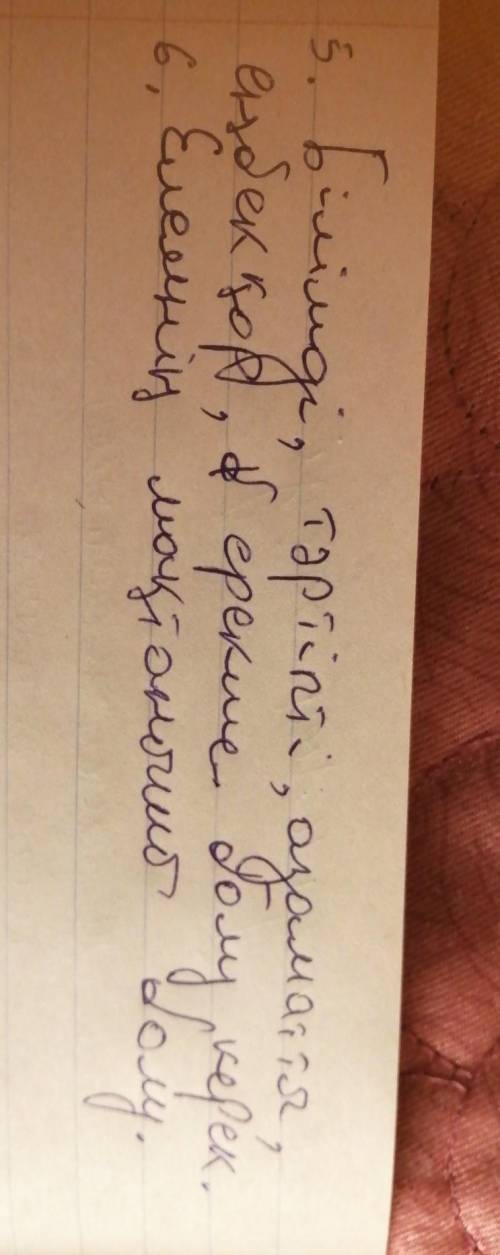 5. Білімді, тәртіпті, азамаття,
еңбекқор, ерекше болу керек.
6. Елемнің мақтанышы болу.